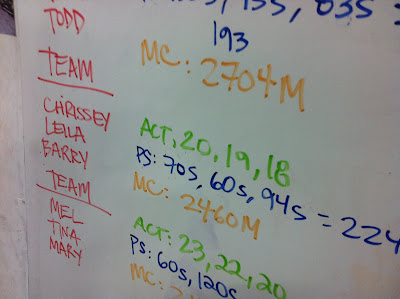 TODD
TEAM
CHRISSEY
LEILA
BARRY
TEAM
MEL
TINA
MARY
193
MC: 2704M
ACT, 20, 19, 18
PS: 70s, 60s, 94s = 224
MC: 2460M
ACT: 23, 22, 20
PS: 60s, 120s
MC: